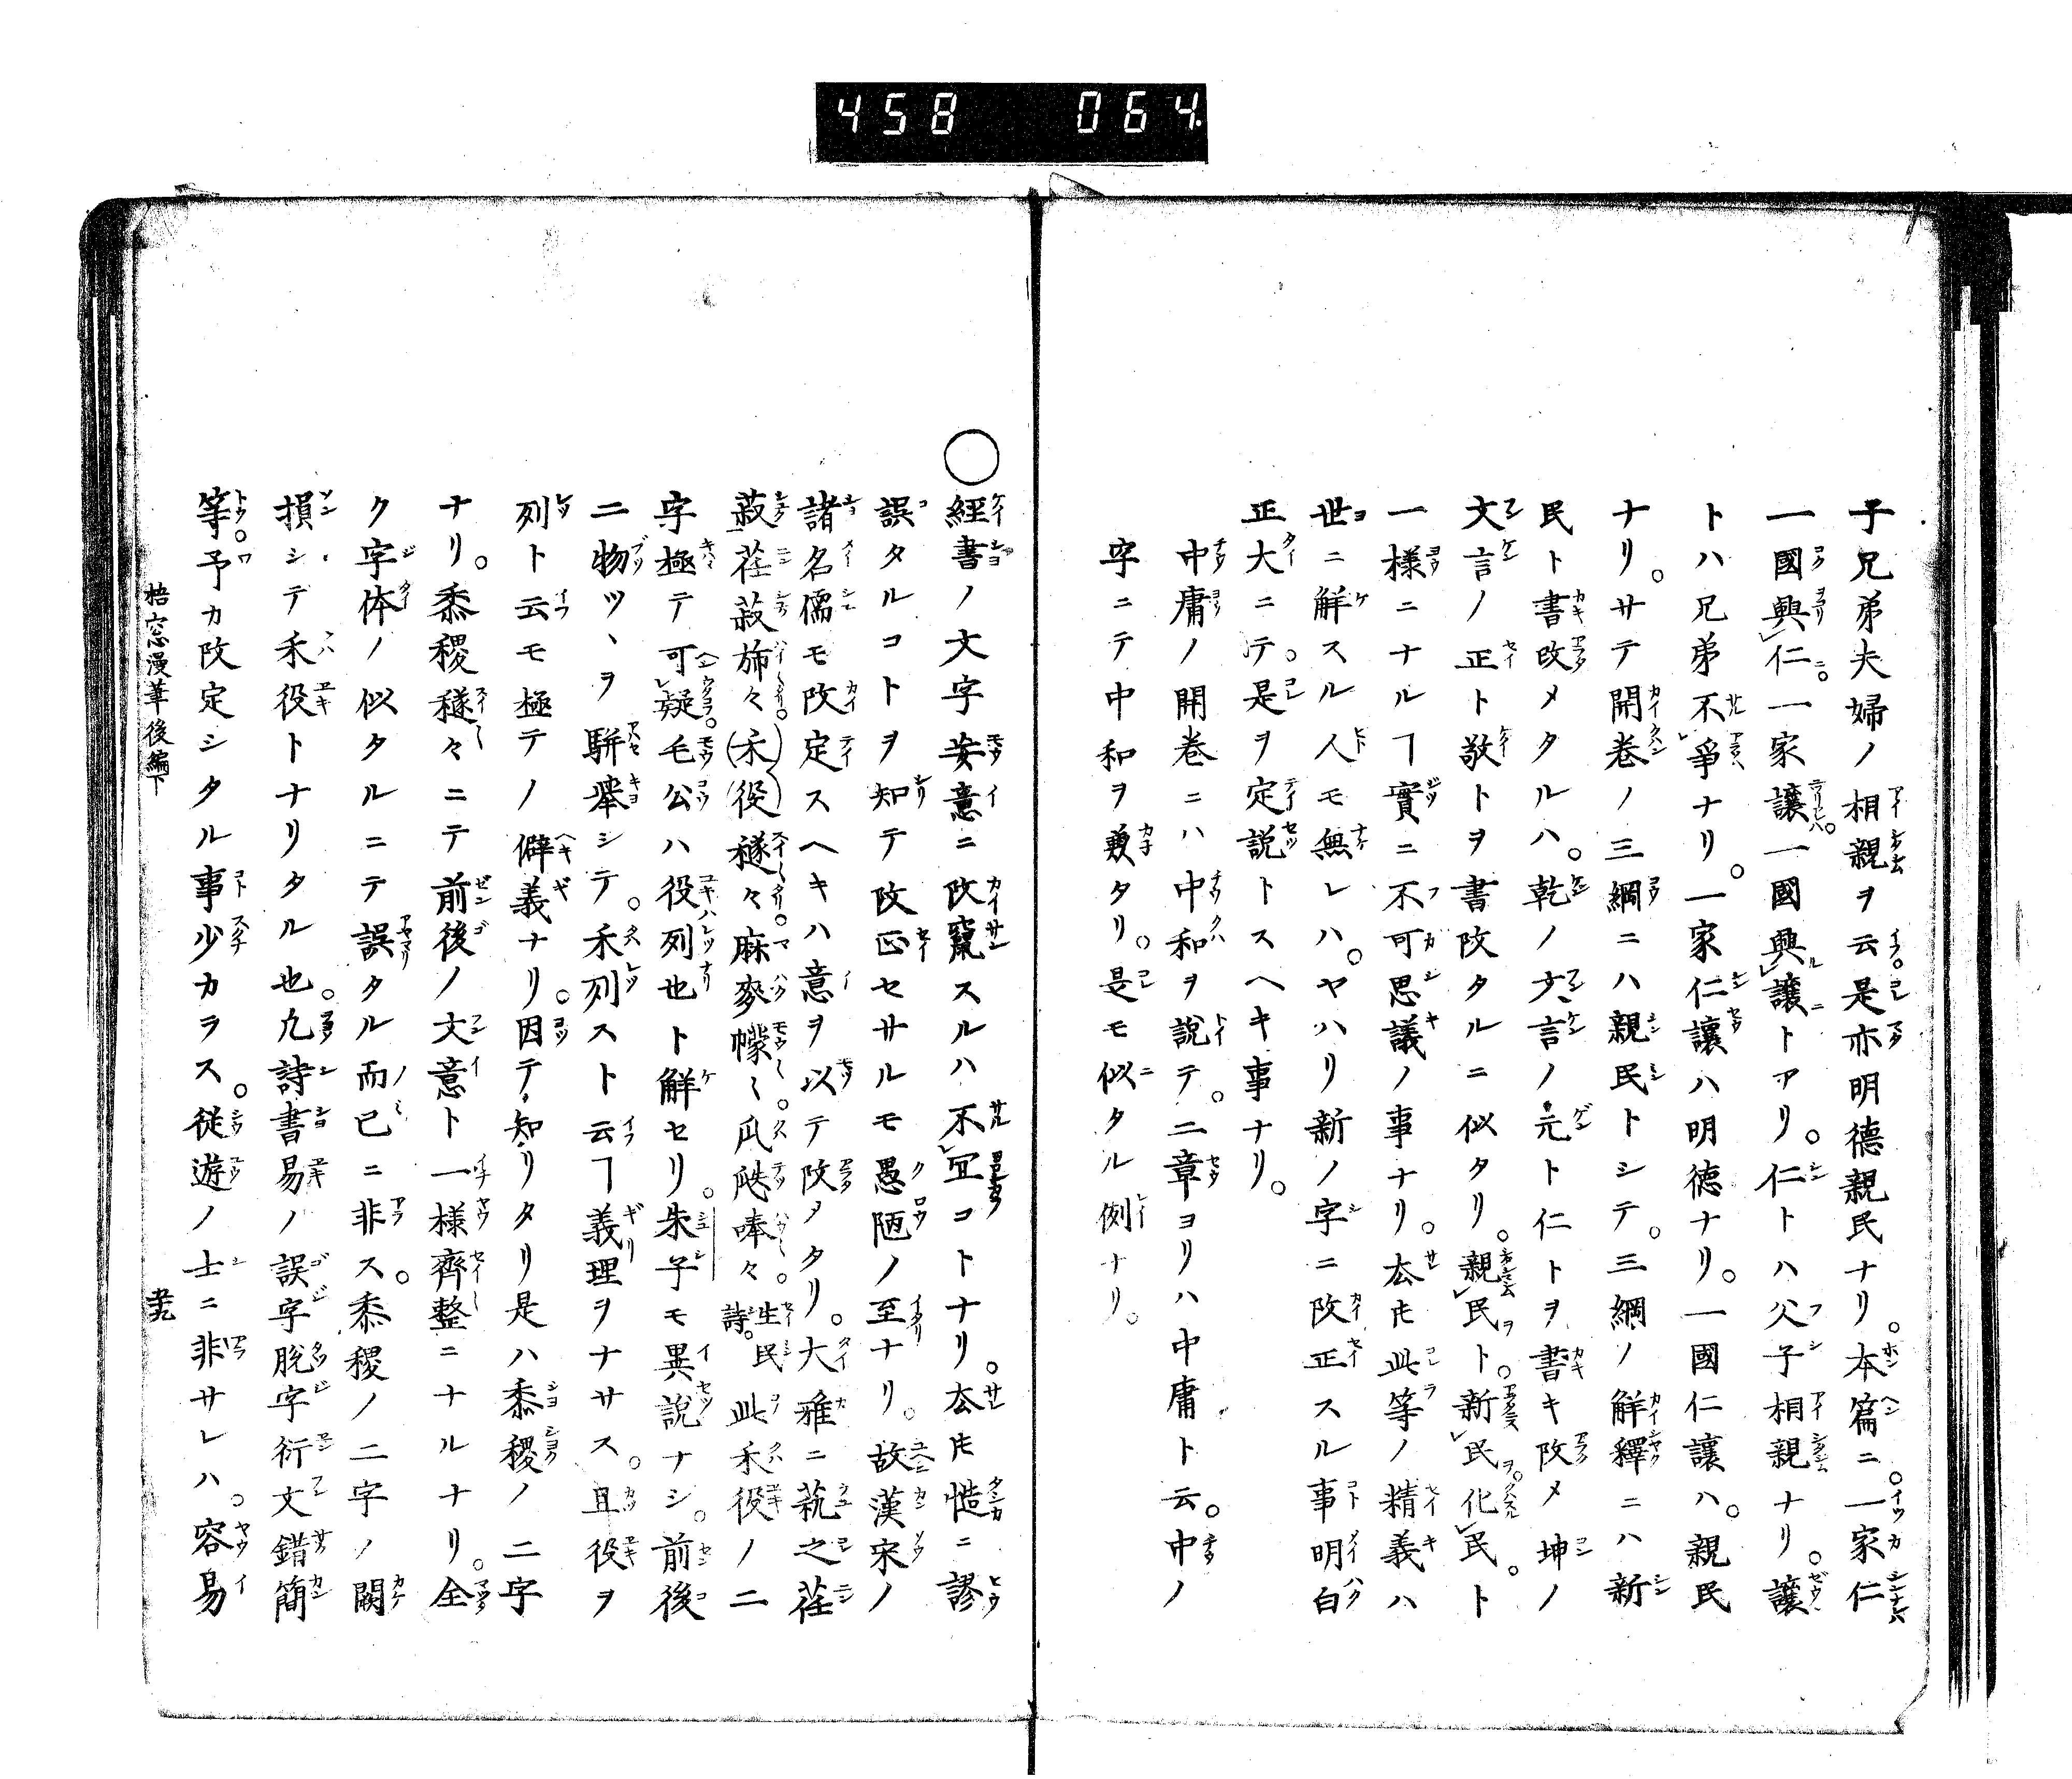 458 064
子兄弟夫婦ノ相親ヲ云是亦明徳親民ナリ。本篇ニ。一家仁
一國興仁。一家讓一國興讓トアリ。仁トハ父子相親ナリ。讓
トハ兄弟不爭ナリ。一家仁讓ハ明徳ナリ。一國仁讓ハ。親民
ナリ。サテ開卷ノ三綱ニハ親民トシテ。三綱ノ解釋ニハ新
民ト書改メタルハ。乾ノ文言ノ元ト仁トヲ書キ改メ坤ノ
文言ノ正ト敬トヲ書改タルニ似タリ。親民ト。新民化民。ト
一様ニナルヿ實ニ不可思議ノ事ナリ。太𪜈此等ノ精義ハ
世ニ解スル人モ無レハ。ヤハリ新ノ字ニ改正スル事明白
正大ニテ。是ヲ定説トスヘキ事ナリ。
中庸ノ開卷ニハ中和ヲ説テ。二章ヨリハ中庸ト云。中ノ
字ニテ中和ヲ兼タリ。是モ似タル例ナリ。
◯經書ノ文字妄意ニ改竄スルハ不宜コトナリ。太𪜈慥ニ謬
誤タルコトヲ知テ改正セサルモ愚陋ノ至ナリ。故漢宋ノ
諸名儒モ改定スヘキハ意ヲ以テ改タリ。大雅ニ蓺之荏
菽荏菽旆々。(禾役)穟々麻麥幪〻瓜瓞唪々生民詩。此禾役ノ二
字極テ可疑。毛公ハ役列也ト解セリ。朱子モ異説ナシ。前後
二物ツヽヲ駢擧シテ。禾列スト云ヿ義理ヲナサス。且役ヲ
列ト云モ極テノ僻義ナリ。因テ知リタリ是ハ黍稷ノ二字
ナリ。黍稷穟々ニテ前後ノ文意ト一様齊整ニナルナリ。全
ク字体ノ似タルニテ誤タル而已ニ非ス。黍稷ノ二字ノ闕
損シテ禾役トナリタル也。凢詩書易ノ誤字脱字衍文錯簡
等。予カ改定シタル事少カラス。従遊ノ士ニ非サレハ。容易
梧窓漫筆後編下